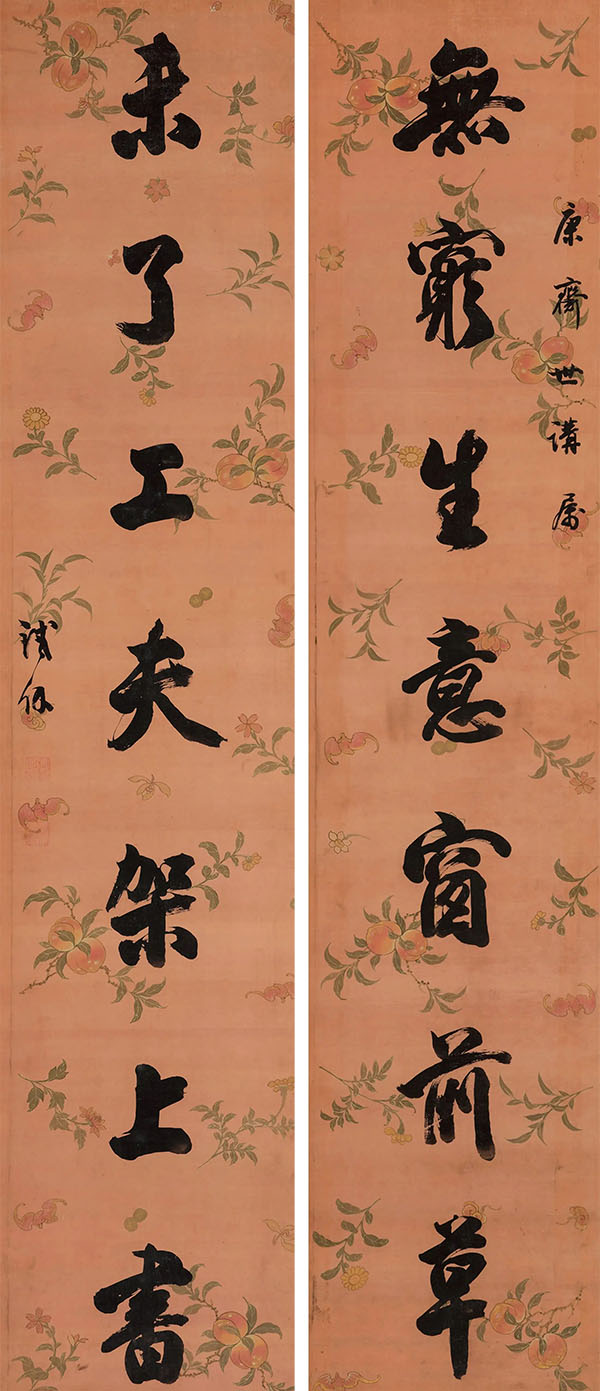 康齋世講屬
無窮生意窗前草
未了工夫架上書
鐵保